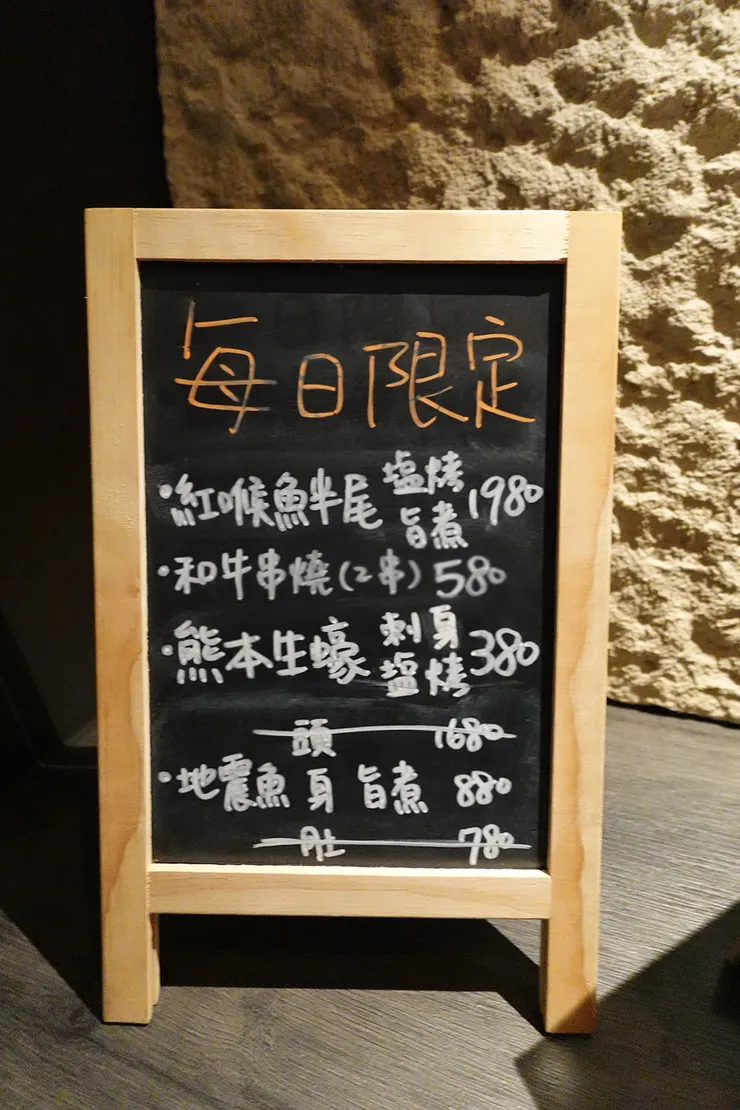 每日限定
•紅喉魚半尾 塩烤 1980
旨煮
•和牛串燒(2串) 580
•熊本生蠔 刺身 380
塩烤
頭 1680
•地震魚 身 旨煮 880
肚 780